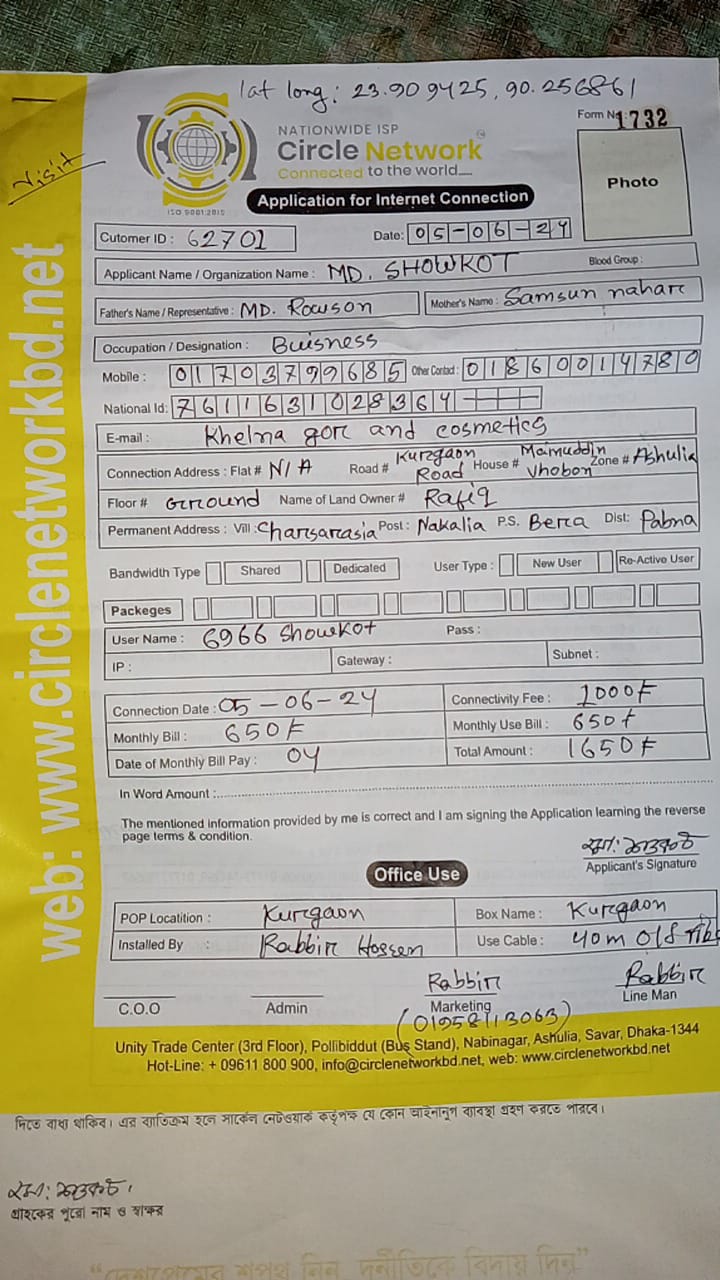 lat long: 23.909425, 90.256861
Form No: 1732
Visit
NATIONWIDE ISP
Circle Network
Connected to the world....
ISO 9001:2015
Application for Internet Connection
Photo
Cutomer ID : 62701 Date: 05-06-24
Applicant Name / Organization Name : MD. SHOWKOT Blood Group :
Father's Name / Representative : MD. Rowson Mother's Name : Samsun nahar
Occupation / Designation : Buisness
Mobile : 01703799685 Other Contact : 01860014780
National Id: 7611631028364
E-mail : Khelna gor and cosmetics
Connection Address : Flat # N/A Road # Kurgaon Road House # Mainuddin Vhobon Zone # Ashulia
Floor # Ground Name of Land Owner # Rafiq
Permanent Address : Vill : Charsarasia Post : Nakalia P.S. Bera Dist: Pabna
Bandwidth Type Shared Dedicated User Type : New User Re-Active User
Packeges
User Name : 6966 Showkot Pass :
IP : Gateway : Subnet :
Connection Date : 05-06-24 Connectivity Fee : 1000৳
Monthly Bill : 650৳ Monthly Use Bill : 650৳
Date of Monthly Bill Pay : 04 Total Amount : 1650৳
In Word Amount :
The mentioned information provided by me is correct and I am signing the Application learning the reverse
page terms & condition.
মো: শওকত
Applicant's Signature
Office Use
POP Locatition : Kurgaon Box Name : Kurgaon
Installed By : Rabbir Hossen Use Cable : 40m
Rabbir Rabbir
C.O.O Admin Marketing Line Man
(01958113063)
Unity Trade Center (3rd Floor), Pollibiddut (Bus Stand), Nabinagar, Ashulia, Savar, Dhaka-1344
Hot-Line: + 09611 800 900, info@circlenetworkbd.net, web: www.circlenetworkbd.net
web: www.circlenetworkbd.net
দিতে বাধ্য থাকিব। এর ব্যতিক্রম হলে সার্কেল নেটওয়ার্ক কর্তৃপক্ষ যে কোন আইনানুগ ব্যবস্থা গ্রহণ করতে পারবে।
মো: শওকত।
গ্রাহকের পুরো নাম ও স্বাক্ষর
“দেশপ্রেমের শপথ নিন, দুর্নীতিকে বিদায় দিন”